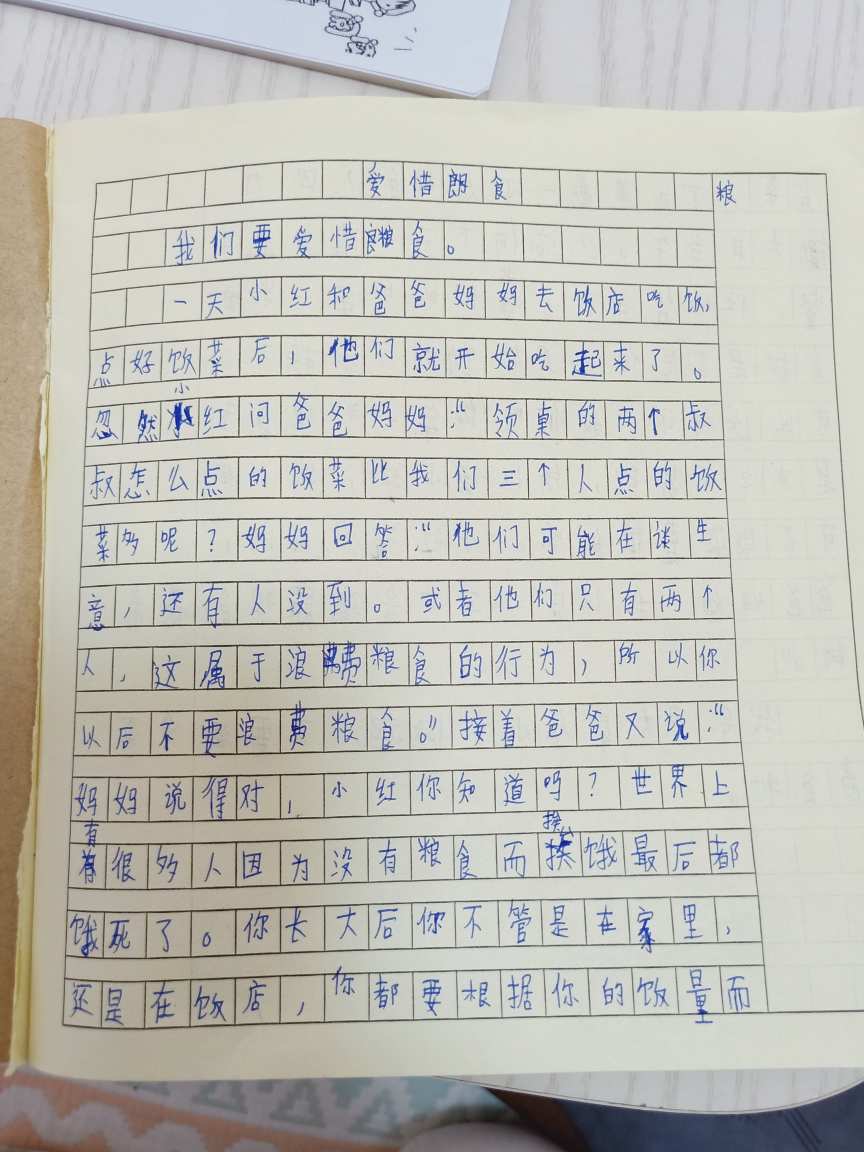 爱惜朗食
粮
我们要爱惜粮食。
一天小红和爸爸妈妈去饭店吃饭,
点好饭菜后,他们就开始吃起来了。
忽然小红问爸爸妈妈:“领桌的两个叔
叔怎么点的饭菜比我们三个人点的饭
菜多呢?妈妈回答:“他们可能在谈生
意,还有人没到。或者他们只有两个
人,这属于浪费粮食的行为,所以你
以后不要浪费粮食。”接着爸爸又说:“
妈妈说得对,小红你知道吗?世界上
有很多人因为没有粮食而挨饿最后都
饿死了。你长大后你不管是在家里,
还是在饭店,你都要根据你的饭量而